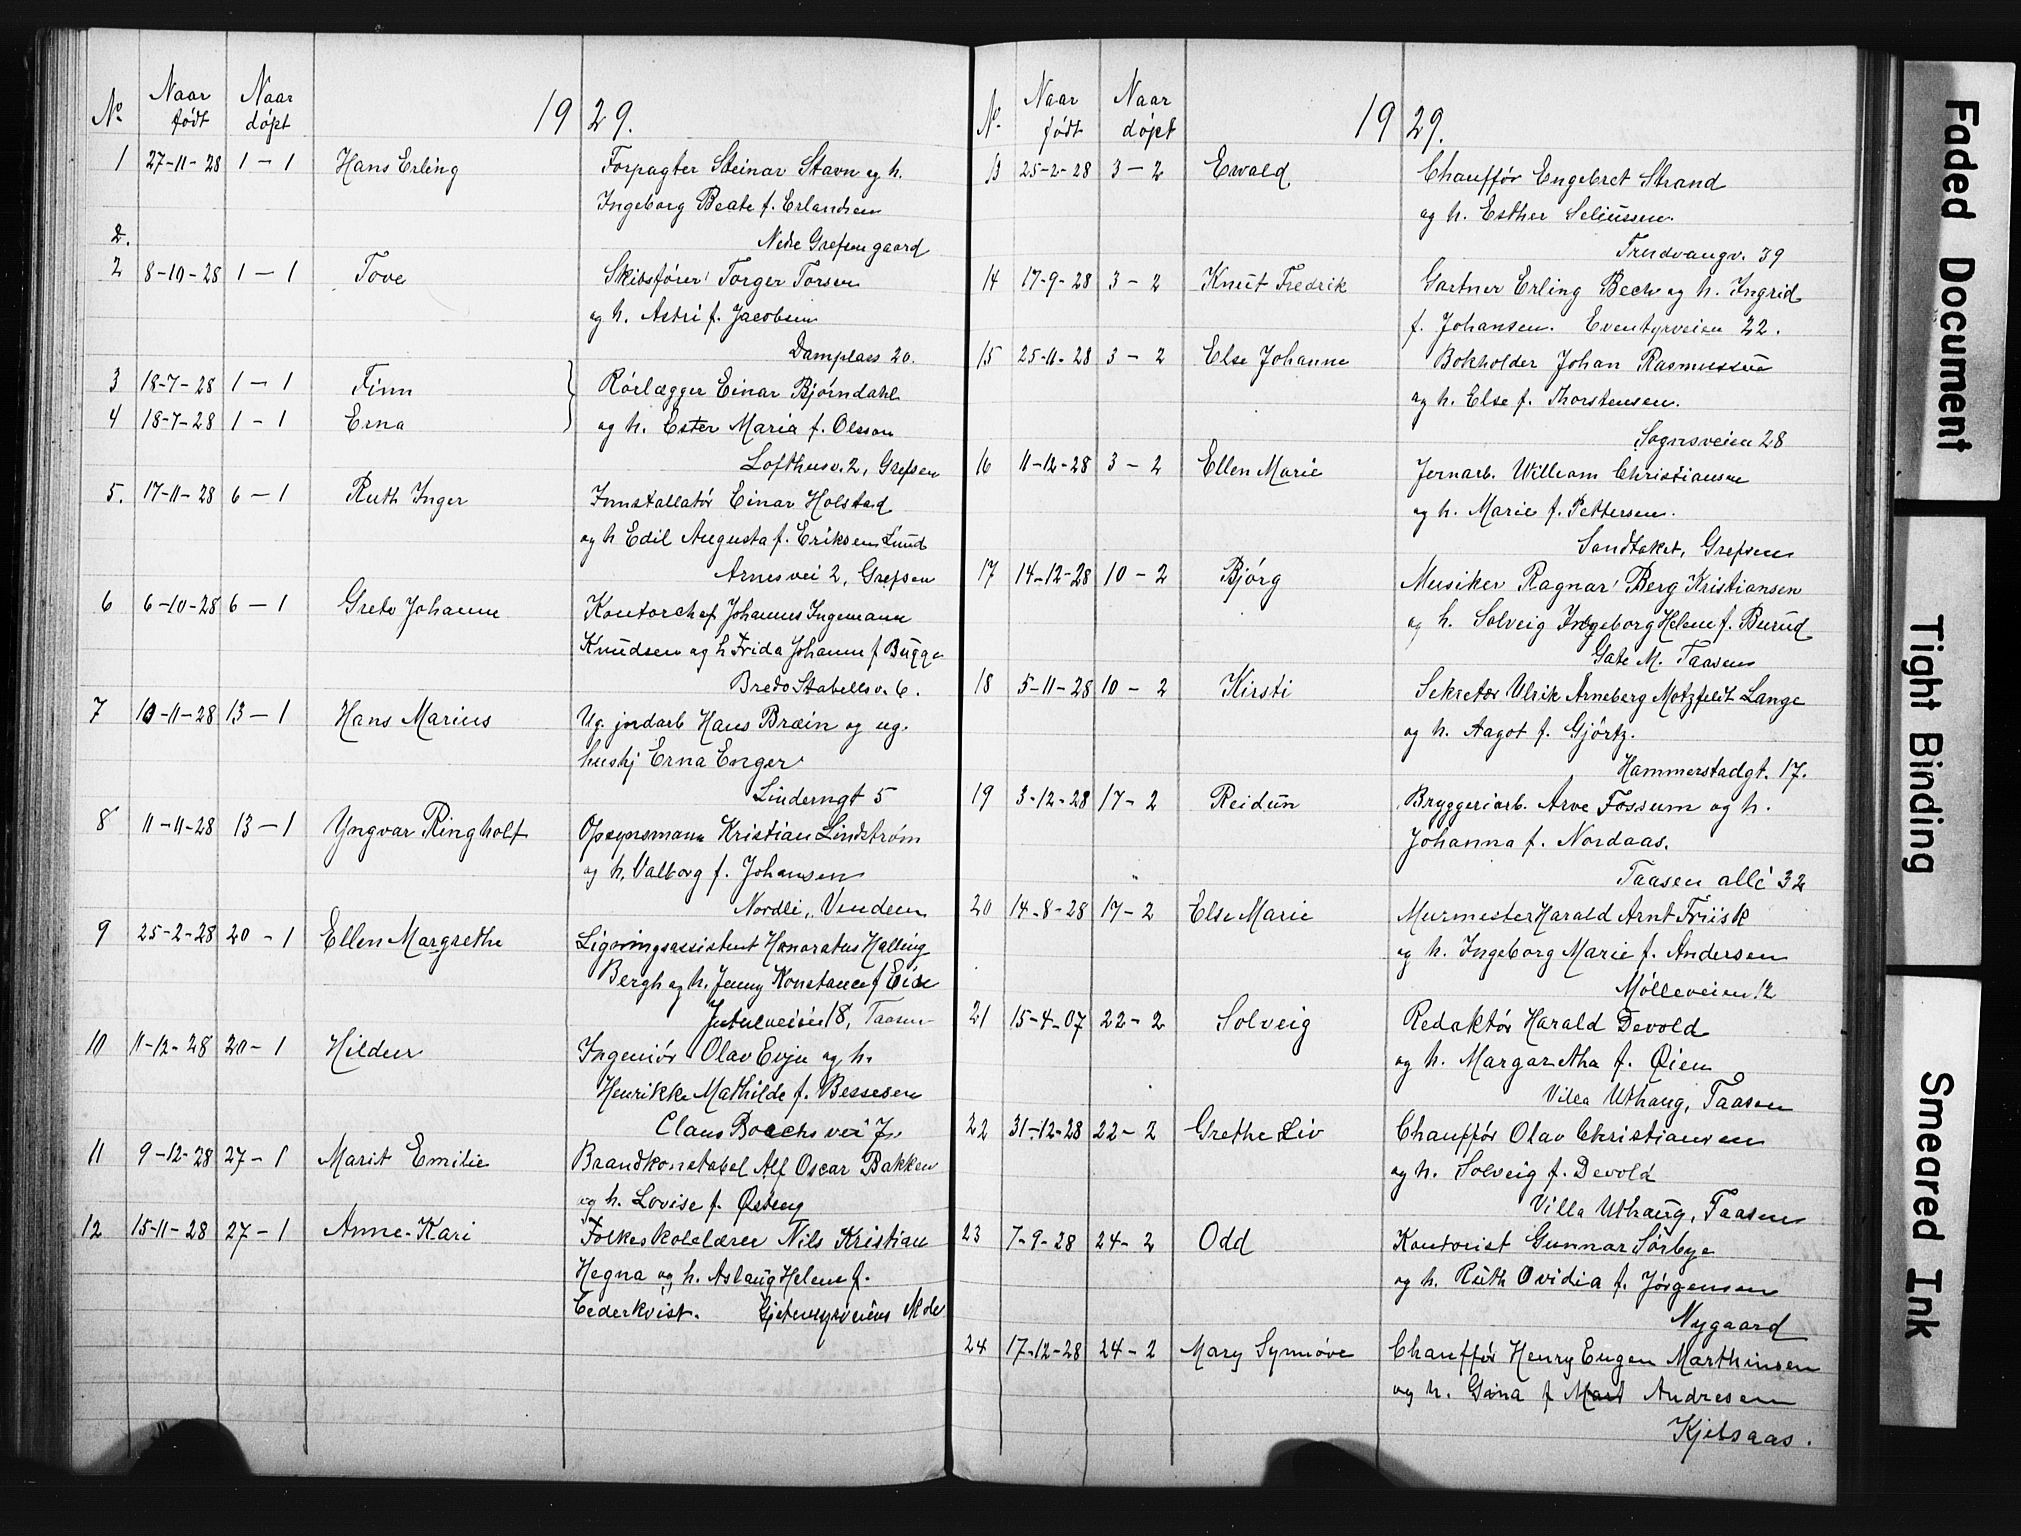 No
Naar født
Naar døpt
1929.
1 27-11-28 1-1 Hans Erling Forpagter Steinar Stavn og h.
Ingeborg Beate f. Erlandsen
Nedre Grefsen gaard
2.
2 8-10-28 1-1 Tove Skibsfører Torger Torsen
og h. Astri f. Jacobsen
Damplass 20.
3 18-7-28 1-1 Finn Rørlægger Einar Bjørndahl
4 18-7-28 1-1 Erna og h. Ester Maria f. Olsson
Lofthusv. 2, Grefsen
5. 17-11-28 6-1 Ruth Inger Innstallatør Einar Holstad
og h Edil Augusta f. Eriksen Lund
Arnes vei 2, Grefsen
6 6-10-28 6-1 Grete Johanne Kontorchef Johannes Ingemann
Knudsen og h Frida Johanne f Bugge
Bredo Stabellsv. 6.
7 10-11-28 13-1 Hans Marius Ug. jordarb Hans Bræin og ug.
hushj Erna Enger
Linderngt 5
8 11-11-28 13-1 Yngvar Ringholt Opsynsmann Kristian Lindstrøm
og h. Valborg f. Johansen
Nordli, Vinderen
9 25-2-28 20-1 Ellen Margrethe Ligningsassistent Honoratus Halling
Bergh og h. Jenny Konstance f Eide
Jutulveien 18, Taasen
10 11-12-28 20-1 Hildur Ingeniør Olav Evju og h.
Henrikke Mathilde f. Bessesen
Claus Borchs vei 7.
11 9-12-28 27-1 Marit Emilie Brandkonstabel Alf Oscar Bakken
og h. Lovise f. Østeng
12 15-11-28 27-1 Anne-Kari Folkeskolelærer Nils Kristian
Hegna og h. Aslaug Helene f.
Cederkvist.
No
Naar født
Naar døpt
1929.
13 25-2-28 3-2 Ewald Chauffør Engebret Strand
og h. Esther Seliussen.
Trudvangv. 39
14 17-9-28 3-2 Knut Fredrik Gartner Erling Bech og h. Ingrid
f. Johansen. Eventyrveien 22.
15 25-11-28 3-2 Else Johanne Bokholder Johan Rasmussen
og h. Else f. Thorstensen.
Sognsveien 28
16 11-12-28 3-2 Ellen Marie Jernarb. William Christiansen
og h. Marie f. Pettersen.
Sandtaket, Grefsen
17 14-12-28 10-2 Bjørg Musiker Ragnar Berg Kristiansen
og h. Solveig Ingeborg Helene f. Burud
Gate M. Taasen
18 5-11-28 10-2 Kirsti Sekretær Ulrik Arneberg Motzfeldt Lange
og h. Aagot f. Gjørtz.
Hammerstadgt. 17.
19 3-12-28 17-2 Reidun Bryggeriarb. Arve Fossum og h.
Johanna f. Nordaas.
Taasen allé 32
20 14-8-28 17-2 Else Marie Murmester Harald Arnt Friisk
og h. Ingeborg Marie f. Andersen
Mølleveien 12
21 15-4-07 22-2 Solveig Redaktør Harald Devold
og h. Margaretha f. Øien
Villa Uthaug, Taasen
22 31-12-28 22-2 Grethe Liv Chauffør Olav Christiansen
og h. Solveig f. Devold
Villa Uthaug, Taasen
23 7-9-28 24-2 Odd Kontorist Gunnar Sørbye
og h. Ruth Ovidia f. Jørgensen
Nygaard
24 17-12-28 24-2 Mary Synnøve Chauffør Henry Eugen Marthinsen
og h. Gina f Andresen
Kjelsaas.
Faded Document
Tight Binding
Smeared Ink